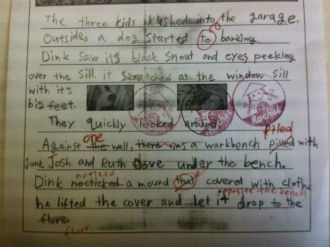 The three kids rushed into the garage.
Outsides a dog started to barking.
Dink saw its black snout and eyes peeking
over the sill. it scratched at the window sill
with its
big feet.
They quickly looked around.
one piled
Against the wall, there was a workbench piled with
junk Josh and Ruth dove under the bench.
noticed
Dink nocticked a mound that covered with clothe
opposite the bench
he lifted the cover and let it drop to the
flore.
floor